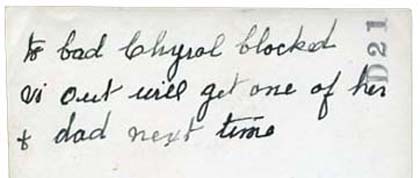 to bad Chyrol blocked
Vi out will get one of her
& dad next time
D21